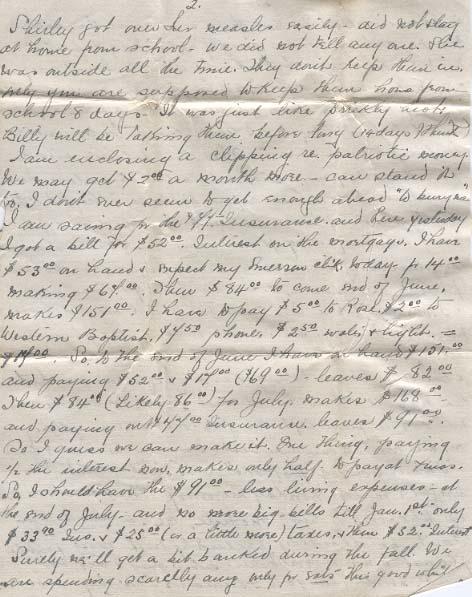 2.
Shirley got over her measles easily - did not stay
at home from school - we did not tell any one. She
was outside all the time. They don't keep them in.
only you are supposed to keep them home from
school 8 days. It was just like prickly
Billy will be taking them before long
I am enclosing a clipping re. patriotic money.
We may get $2.00 a month more - can stand it
I don't ever seem to get enough ahead "to bury me"
I am saving for the Insurance. and here yesterday
I got a bill for $52.00. Interest on the mortgage. I have
$53.00 on hand & expect my today for 14.00
making $67.00. Then $84.00 to come end of June,
makes $151.00. I have to pay $5.00 to Rose, $2.00 to
Western Baptist, $4.50 phone, $2.50 water & light. =
So, to the end of June I have on hand $151.00
and paying $52.00 & ($69.00) - leaves $82.00
Then $84.00 (likely 86.00) for July, makes $168.00
and paying out Insurance, leaves $91.00.
So I guess we can make it. One thing, paying
1/2 the interest now, makes only half to pay at Xmas.
So, I should have the $91.00 - less living expenses - at
the end of July - and no more big bills till Jan. 1st - only
$33.90 Ins. & $25.00 (or a little more) taxes, & then $52.00 Interest
Surely we'll get a bit banked during the fall. We
are spending scarcely any only for this good